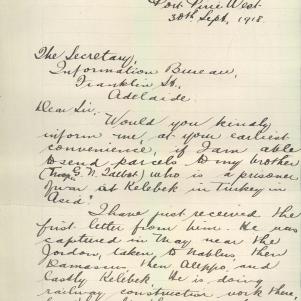 Port Pirie West.
30th Sept, 1918.
The Secretary,
Information Bureau,
Franklin St.,
Adelaide.
Dear Sir:
Would you kindly
inform me, at your earliest
convenience, if I am able
to send parcels to my brother
G. N. Talbot) who is a prisoner
of war at Kelebek in Turkey in
Asia?
I have just received the
first letter from him. He was
captured in May near the
Jordon, taken to Nablus, then
Damascus, then Aleppo, and
lastly Kelebek. He is doing
railway construction work there,